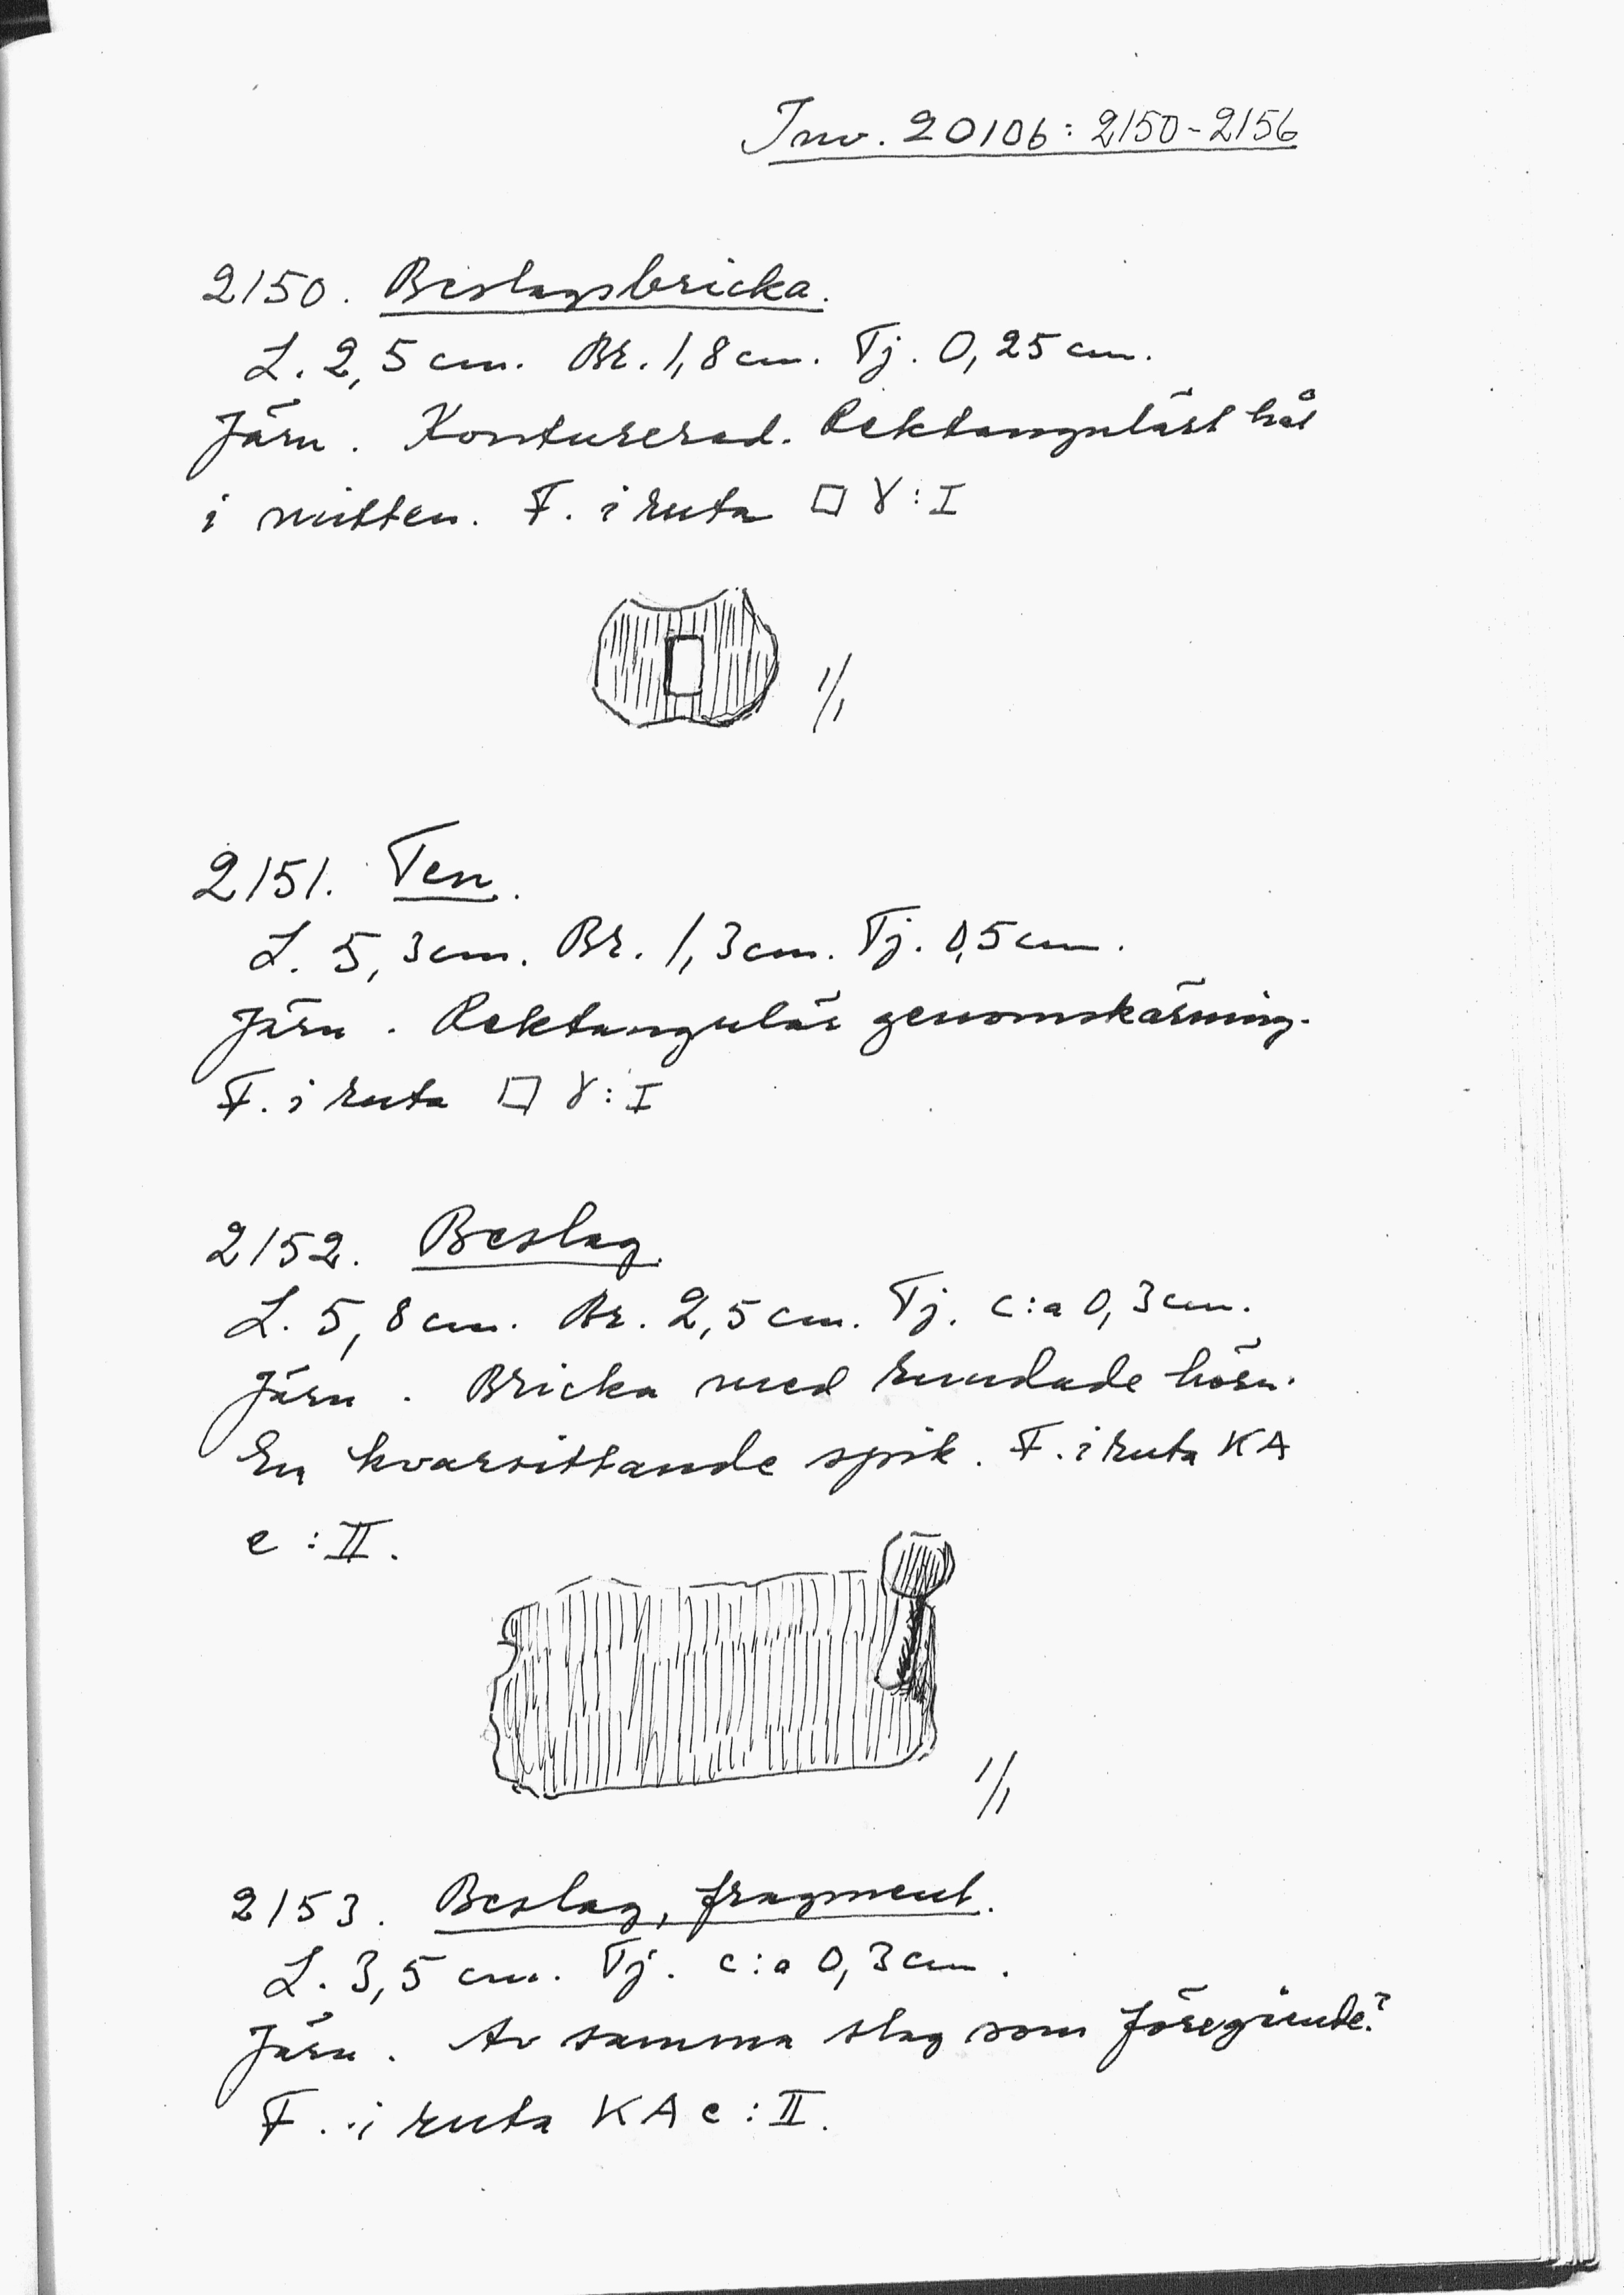 Inv. 20106: 2150-2156
2150. Beslagsbricka.
L. 2,5 cm. Br. 1,8 cm. Tj. 0,25 cm.
Järn. Konturerad. Rektangulärt hål
i mitten. F. i ruta □ γ: I
1/1
2151. Ten.
L. 5,3 cm. Br. 1,3 cm. Tj. 0,5 cm.
Järn. Rektangulär genomskärning.
F. i ruta □ γ: I
2152. Beslag.
L. 5,8 cm. Br. 2,5 cm. Tj. c:a 0,3 cm.
Järn. Bricka med rundade hörn.
En kvarsittande spik. F. i ruta KA
e: II.
1/1
2153. Beslag, fragment.
L. 3,5 cm. Tj. c:a 0,3 cm.
Järn. Av samma slag som föregående?
F. i ruta KA e: II.